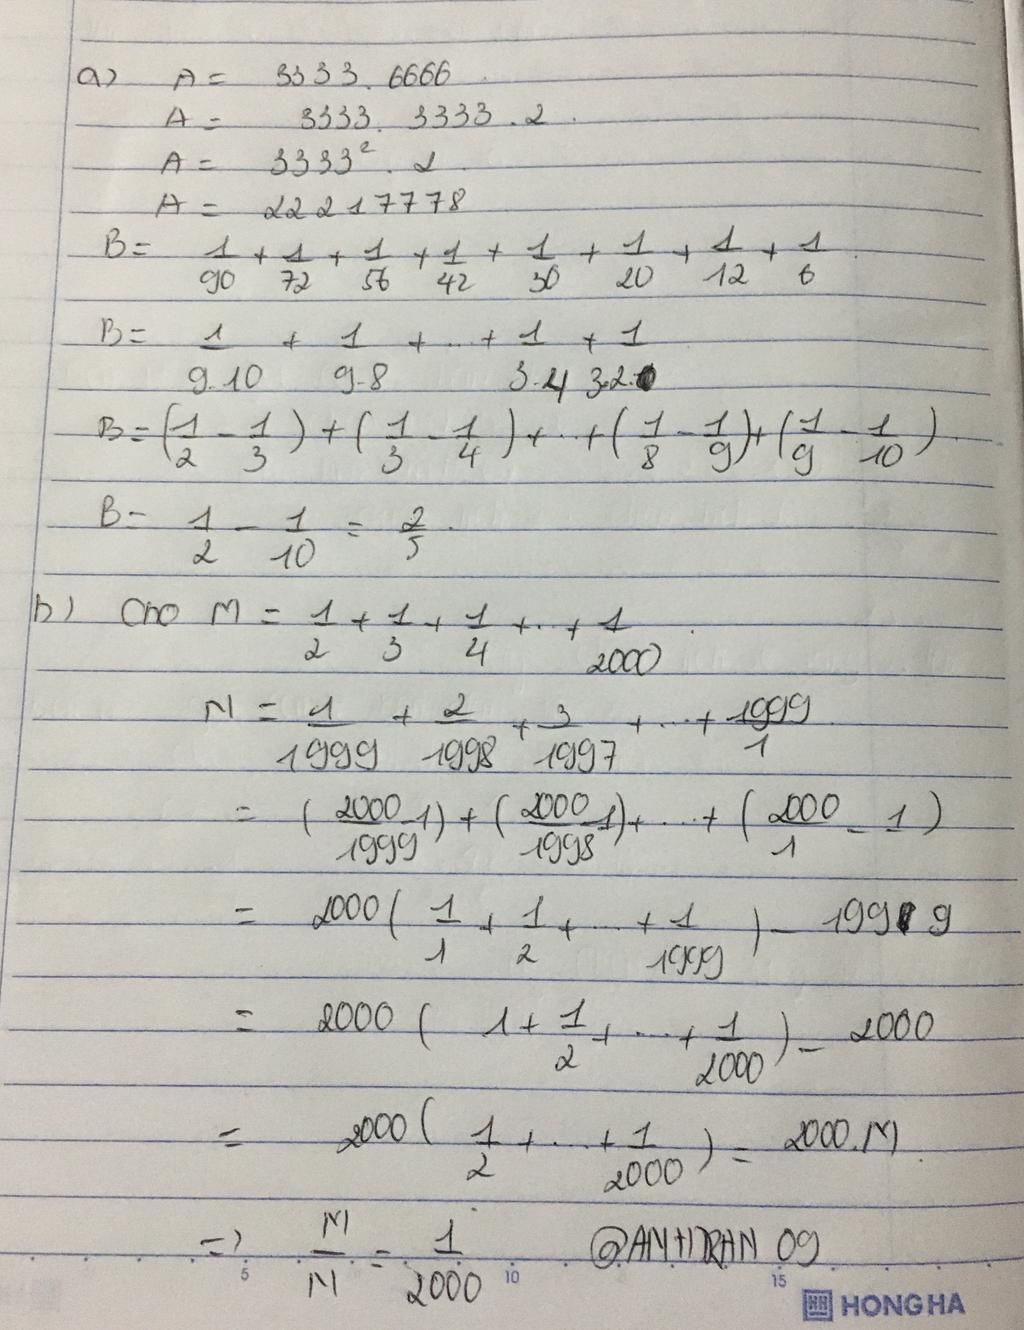 a) A = 3333.6666
A = 3333. 3333.2
A = 3333². 2
A = 22217778
B = 1/90 + 1/72 + 1/56 + 1/42 + 1/30 + 1/20 + 1/12 + 1/6
B = 1/9.10 + 1/9.8 + ... + 1/3.4 + 1/3.2
B = (1/2 - 1/3) + (1/3 - 1/4) + ... + (1/8 - 1/9) + (1/9 - 1/10)
B = 1/2 - 1/10 = 2/5.
b) Cho M = 1/2 + 1/3 + 1/4 + ... + 1/2000
N = 1/1999 + 2/1998 + 3/1997 + ... + 1999/1
= (2000/1999 - 1) + (2000/1998 - 1) + ... + (2000/1 - 1)
= 2000 (1/1 + 1/2 + ... + 1/1999) - 1999
= 2000 (1 + 1/2 + ... + 1/2000) - 2000
= 2000 (1/2 + ... + 1/2000) = 2000.M
=> M/N = 1/2000 @ANHTRAN 09
5 10 15
HH HONG HA